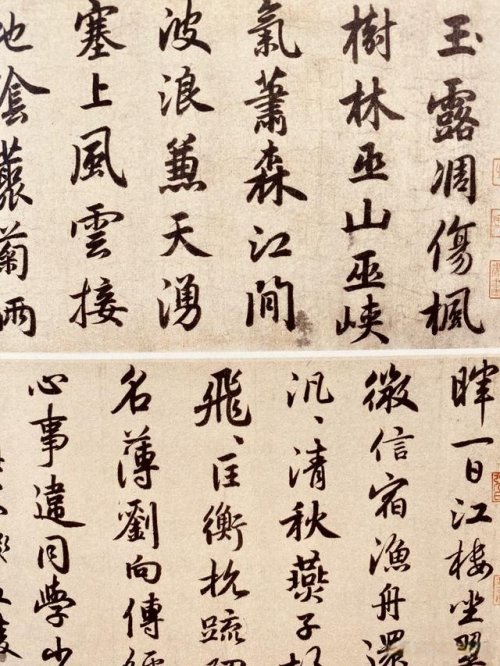 玉露凋傷楓
樹林巫山巫峽
氣蕭森江間
波浪兼天湧
塞上風雲接
地陰藂菊兩
暉一日江樓坐翠
微信宿漁舟還
汎、清秋燕子
飛、匡衡抗疏
名薄劉向傳經
心事違同學少